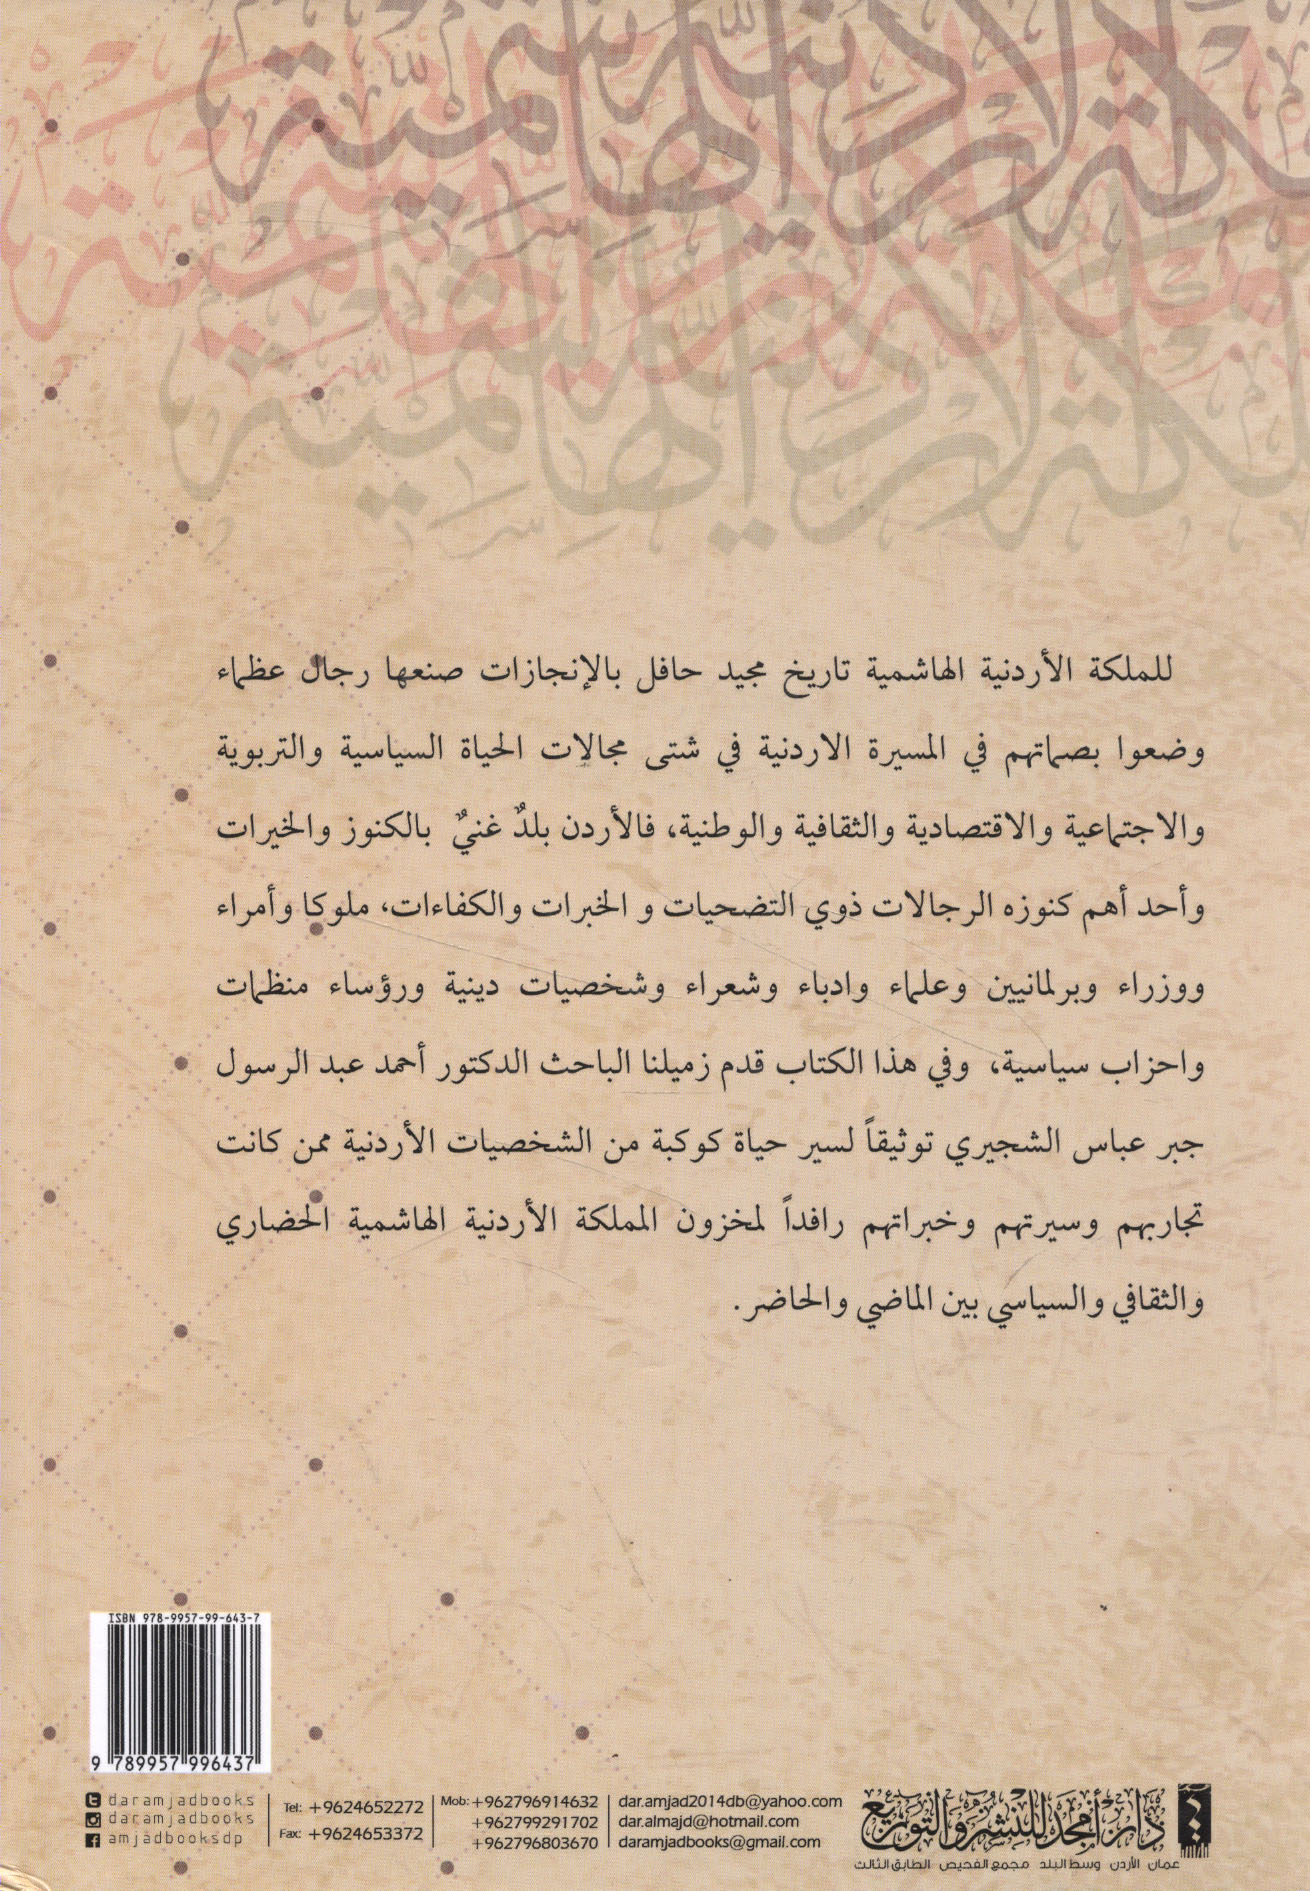 للملكة الأردنية الهاشمية تاريخ مجيد حافل بالإنجازات صنعها رجال عظماء
وضعوا بصماتهم في المسيرة الاردنية في شتى مجالات الحياة السياسية والتربوية
والاجتماعية والاقتصادية والثقافية والوطنية، فالأردن بلدٌ غنيٌ بالكنوز والخيرات
وأحد أهم كنوزه الرجالات ذوي التضحيات و الخبرات والكفاءات، ملوكا وأمراء
ووزراء وبرلمانيين وعلماء وادباء وشعراء وشخصيات دينية ورؤساء منظمات
واحزاب سياسية، وفي هذا الكتاب قدم زميلنا الباحث الدكتور أحمد عبد الرسول
جبر عباس الشجيري توثيقاً لسير حياة كوكبة من الشخصيات الأردنية ممن كانت
تجاربهم وسيرتهم وخبراتهم رافداً لمخزون المملكة الأردنية الهاشمية الحضاري
والثقافي والسياسي بين الماضي والحاضر.
ISBN 978-9957-99-643-7
9 789957 996437
daramjadbooks
daramjadbooks
amjadbooksdp
Tel: +9624652272
Fax: +9624653372
Mob: +962796914632
+962799291702
+962796803670
dar.amjad2014db@yahoo.com
dar.almajd@hotmail.com
daramjadbooks@gmail.com
دار أمجد للنشر والتوزيع
عمان الأردن وسط البلد مجمع الفحيص الطابق الثالث